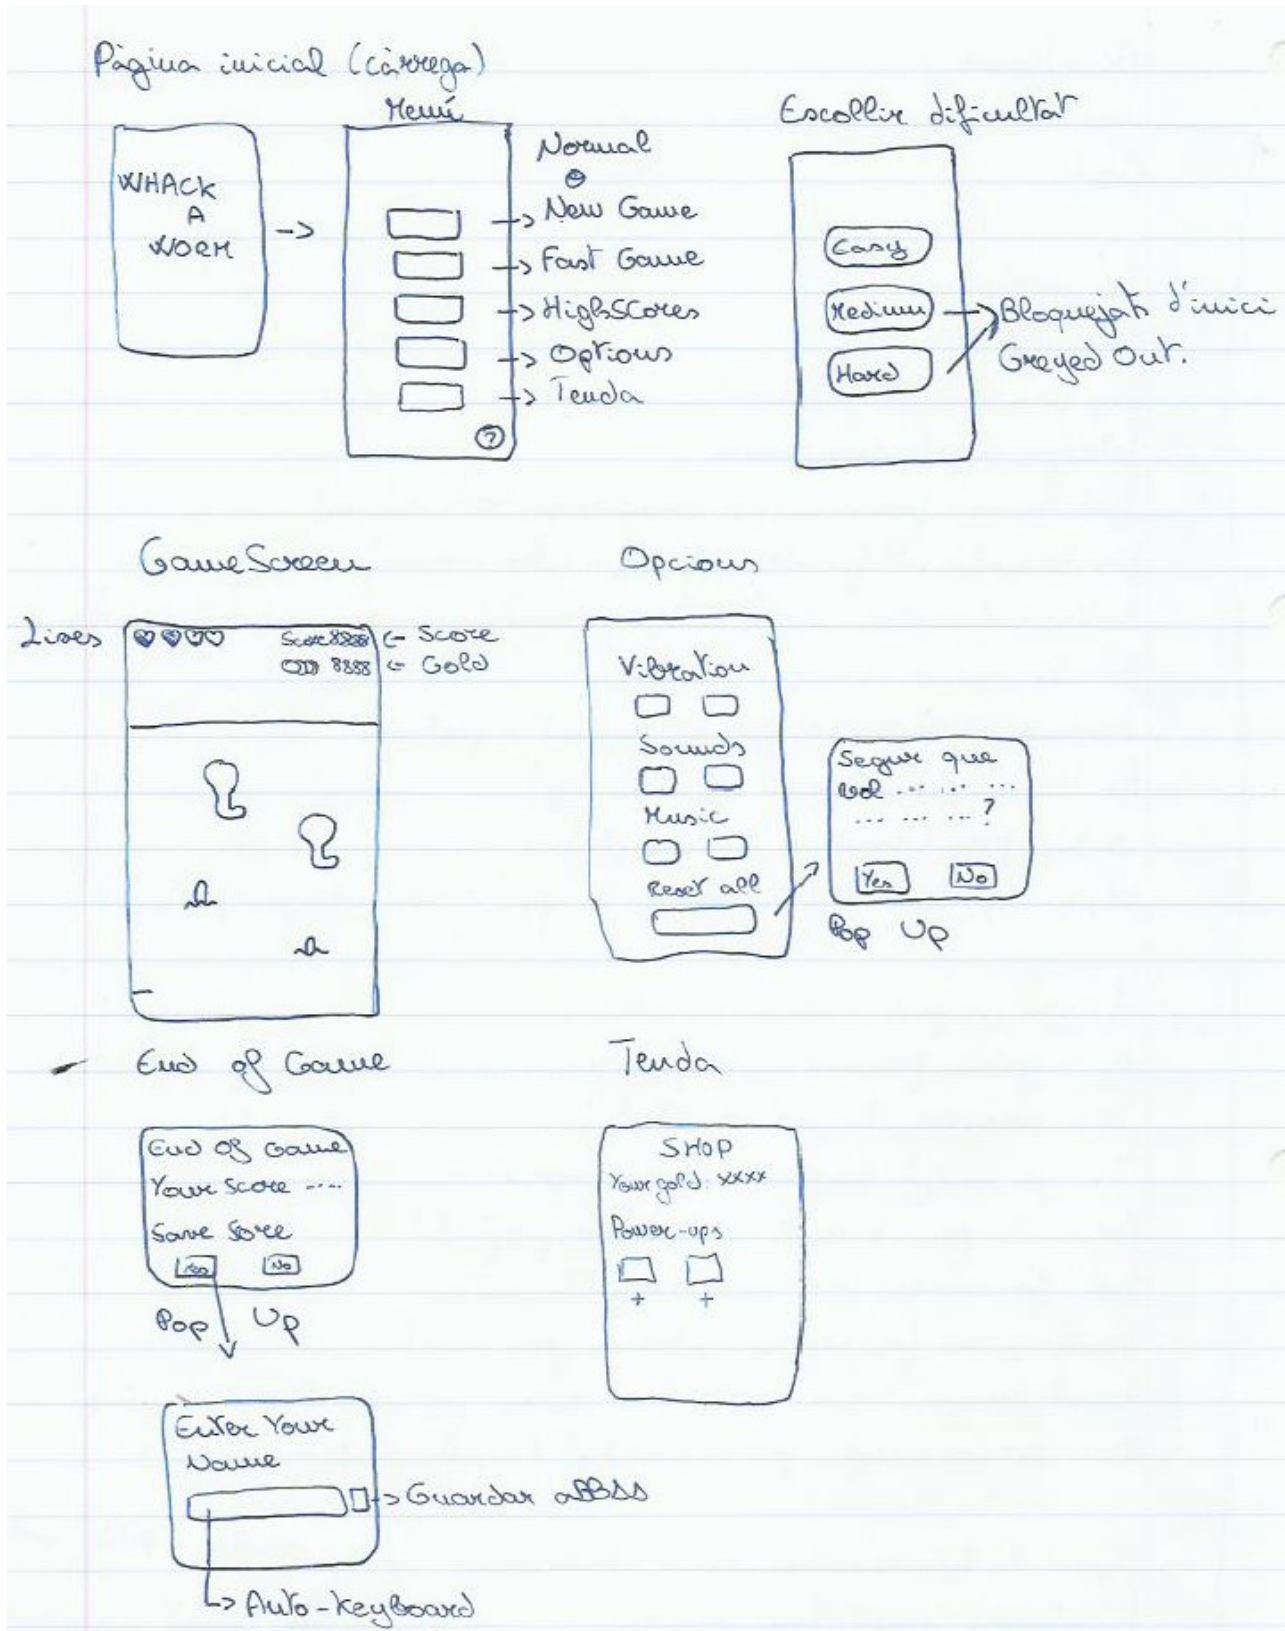 Pàgina inicial (càrrega)
Menú
Escollir dificultat
WHACK
A
WORM
->
Normal
-> New Game
-> Fast Game
-> HighSCores
-> Options
-> Tenda
?
Easy
Medium
Hard
Bloquejats d'inici
Greyed Out.
GameScreen
Lives
Score 8888
<- Score
8888
<- Gold
Opcions
Vibration
Sounds
Music
Reset all
Segur que
vol ... ... ...
... ... ... ?
Yes No
Pop Up
End of Game
End of Game
Your Score ....
Save Sore
Yes No
Pop Up
Enter Your
Name
-> Guardar a BBDD
-> Auto-Keyboard
Tenda
SHOP
Your gold: xxxx
Power-ups
+ +